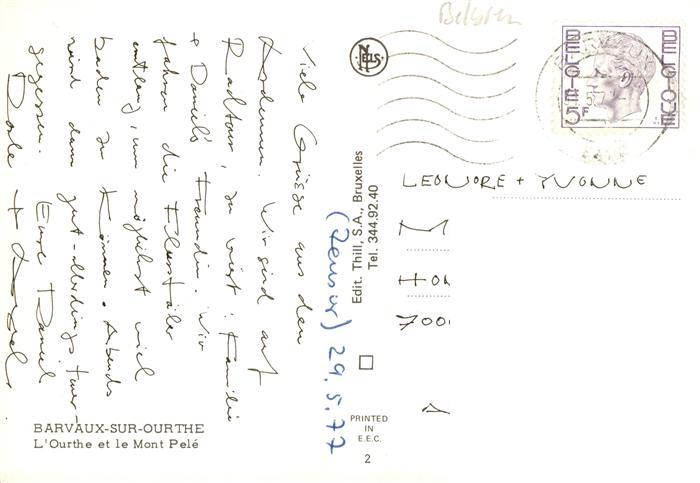 Viele Grüsse aus den
Ardennen. Wir sind auf
Radtour, zu viert: Familie
+ Daniels Freundin. Wir
fahren die Flusstäler
entlang, um möglichst viel
baden zu können. Abends
wird dann gut - allerdings teuer -
gegessen. Eure Daniel
Dorle +
(Zensur) 29.5.77
BARVAUX-SUR-OURTHE
L'Ourthe et le Mont Pelé
NELS
Edit. Thill, S.A., Bruxelles
Tel. 344.92.40
PRINTED
IN
E.E.C.
2
Belgien
BELGIE 5F
BELGIQUE
LEONORE + YVONNE
M
HOH
700
A